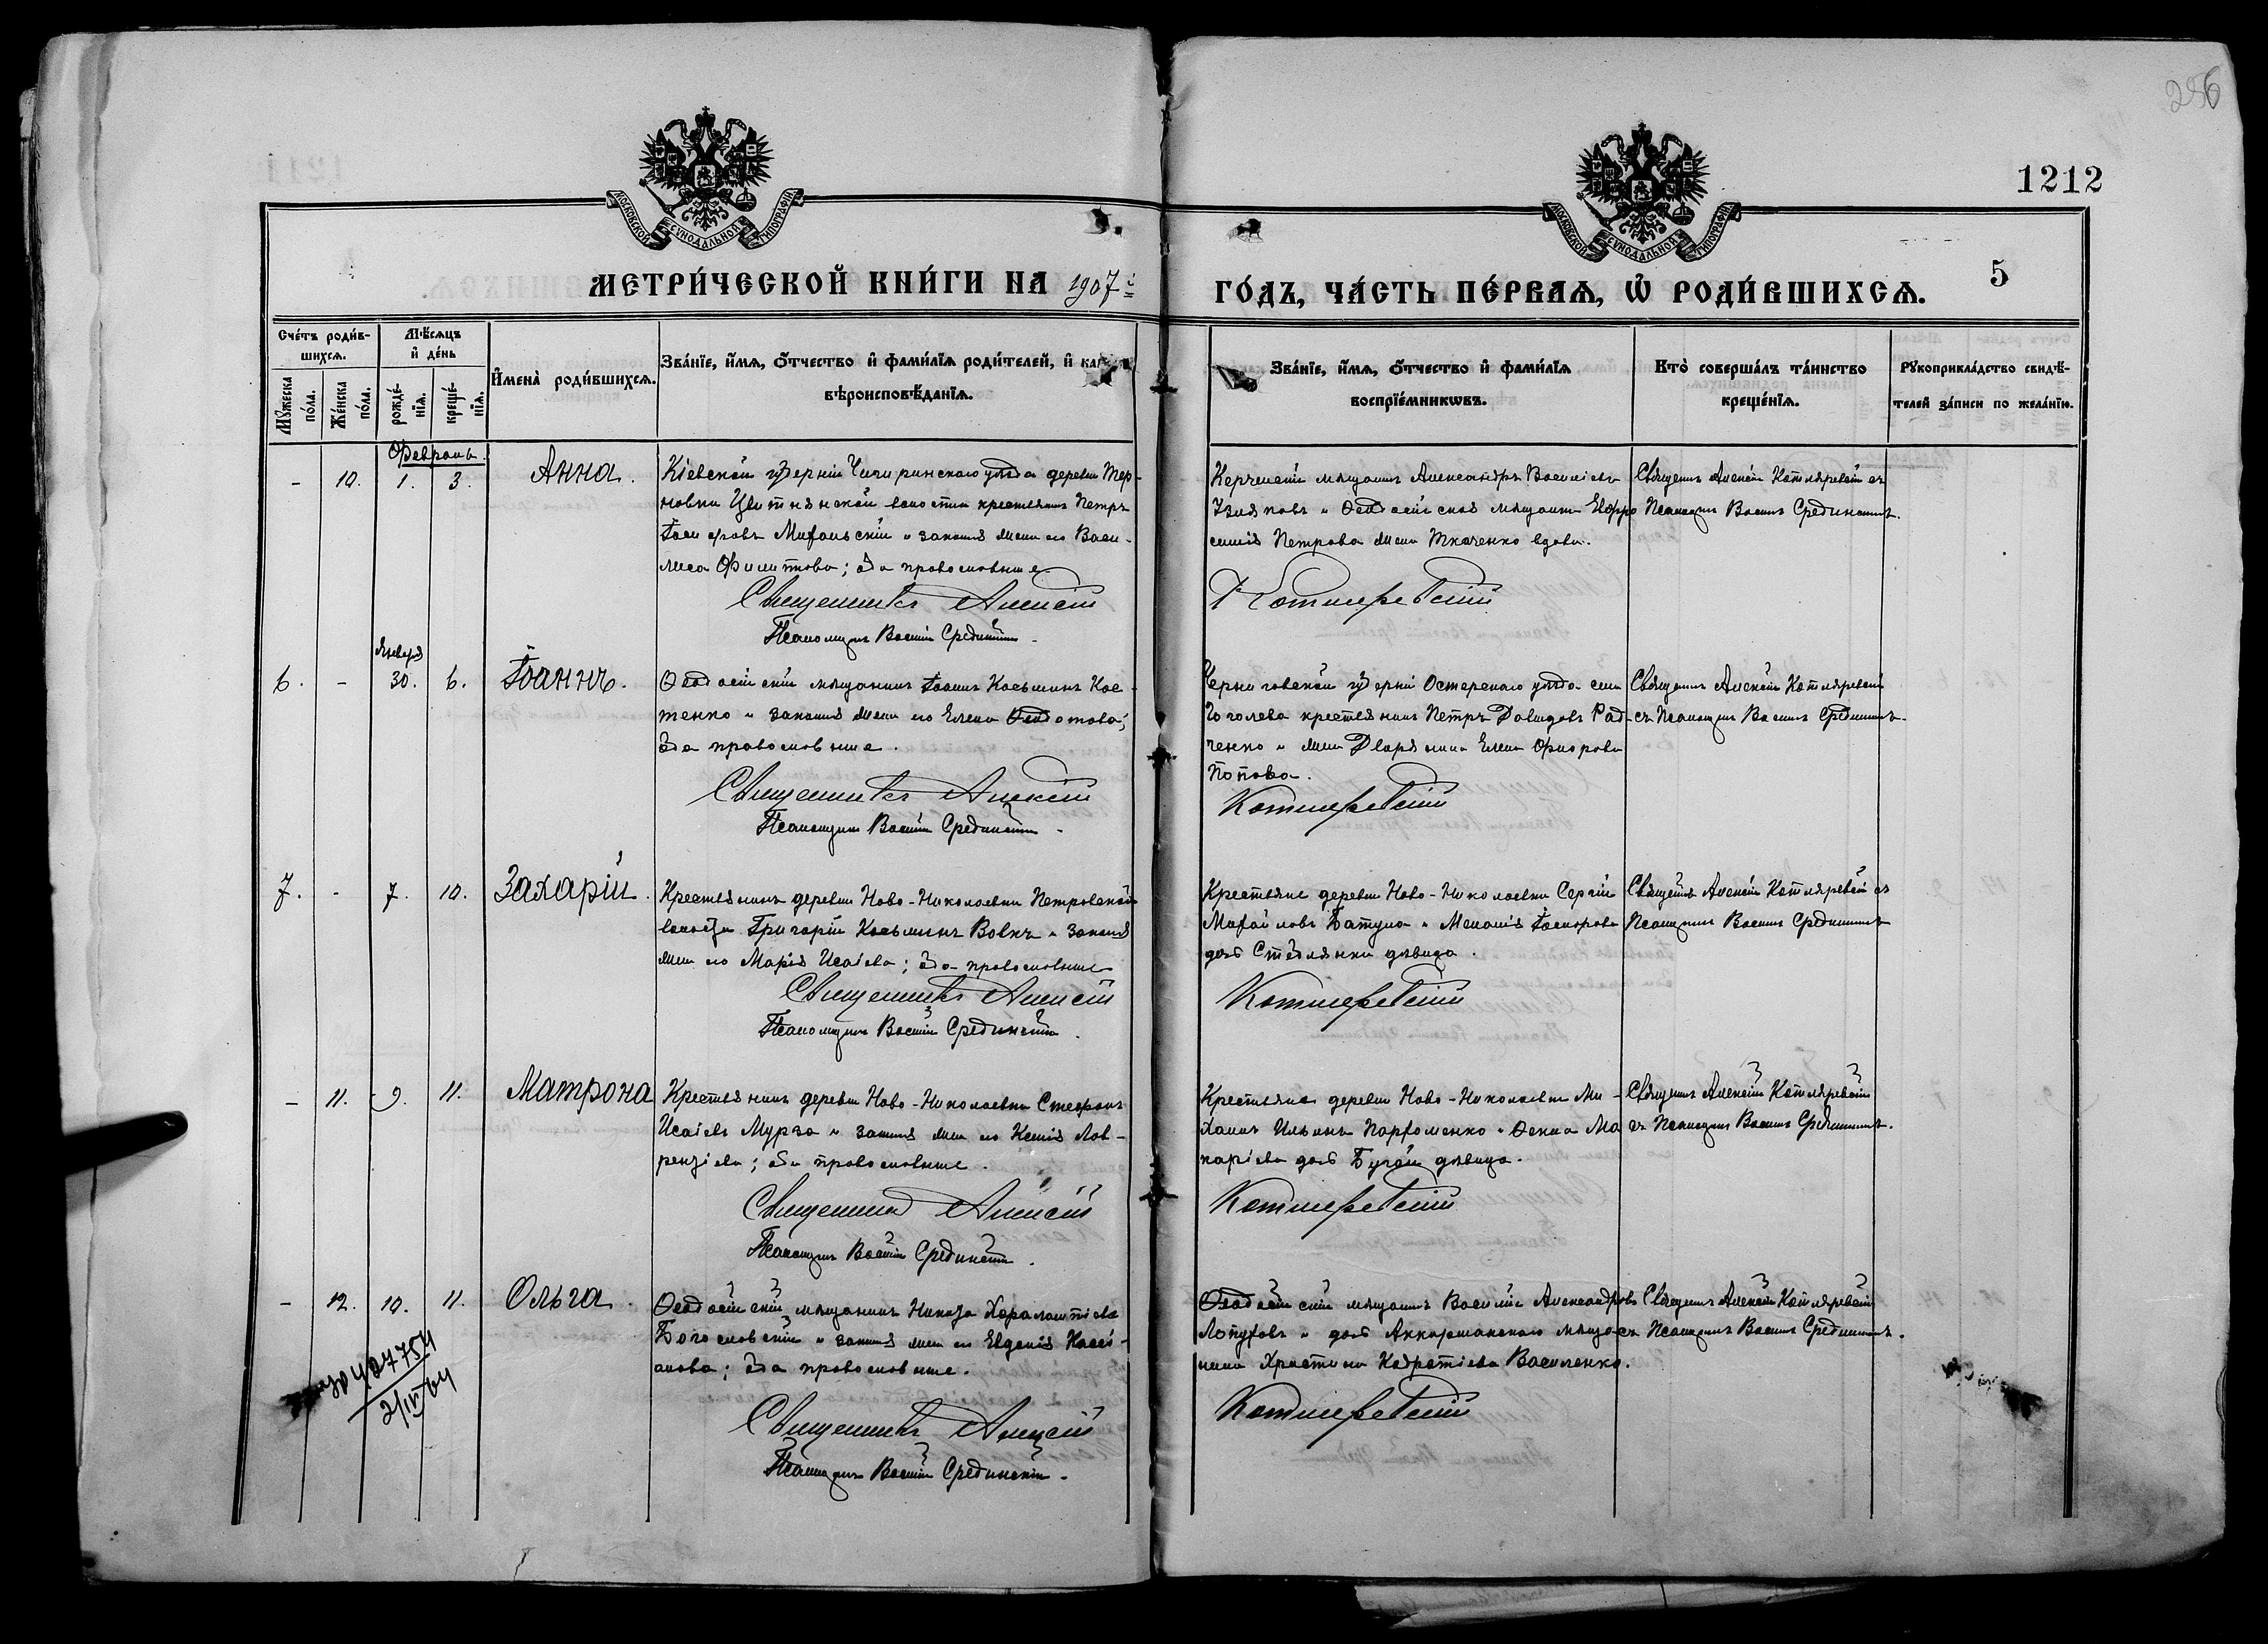 256
1212
5
МОСКОВСКОЙ СѴНОДАЛЬНОЙ ТИПОГРАФІИ
МОСКОВСКОЙ СѴНОДАЛЬНОЙ ТИПОГРАФІИ
МЕТРИ́ЧЕСКОЙ КНИ́ГИ НА 1907 й
ГО́ДЪ, ЧА́СТЬ ПЕ́РВАѦ, Ѽ РОДИ́ВШИХСѦ.
Сче́тъ роди́в-
шихсѧ.
Мꙋжеска по́ла.
Же́нска по́ла.
Мѣ́сѧцъ
и҆ де́нь
рожде́-нїѧ.
креще́-нїѧ.
И҆мена̀ роди́вшихсѧ.
Зва́нїе, и҆́мѧ, ѻ҆́тчество и҆ фами́лїѧ роди́телей, и҆
вѣроисповѣ́данїѧ.
Зва́нїе, и҆́мѧ, ѻ҆́тчество и҆ фами́лїѧ
воспрїе́мникѡвъ.
Кто̀ соверша́лъ та́инство
креще́нїѧ.
Рꙋкоприкла́дство свидѣ́-
телей за́писи по жела́нїю.
Февраль.
- 10. 1. 3. Анна.
Кіевской губерніи Чигиринскаго уѣзда деревни Тер-
новки Цвѣтнянской волости крестьянинъ Петръ
Іосифовъ и законная жена его Васи-
лиса Филиппова; оба православные
Священникъ Алексій Котляревскій
Псаломщикъ Василій Срединскій.
Керченскій мѣщанинъ Александръ Васильевъ
и Ѳеодосійская мѣщанка Евфро
синія Петрова жена Ткаченко вдова.
Священникъ Алексій Котляревскій съ
Псаломщик Василіемъ Срединскимъ.
Января
6. - 30. 6. Іоаннъ.
Ѳеодосійскій мѣщанинъ Іоаннъ Косьминъ Кос-
тенко и законная жена его Елена Ѳеодотова;
оба православные.
Священникъ Алексій Котляревскій
Псаломщикъ Василій Срединскій.
Черниговской губерніи Остерскаго уѣзда села
Гоголева крестьянинъ Петръ Давидовъ Рад-
ченко и жена Дворянина Елена Фролова
Попова.
Священникъ Алексій Котляревскій
съ Псаломщик Василіемъ Срединскимъ.
7. - 7. 10. Захарій.
Крестьянинъ деревни Ново-Николаевки Петровской
волости Григорій Косьминъ Вовкъ и законная
жена его Марія Исаіева; оба православные
Священникъ Алексій Котляревскій
Псаломщикъ Василій Срединскій.
Крестьяне деревни Ново-Николаевки Сергій
Михайловъ Батула и Меланія Іосифова
дочь Стеблянки дѣвица.
Священникъ Алексій Котляревскій съ
Псаломщик Василіемъ Срединскимъ
- 11. 9. 11. Матрона
Крестьянинъ деревни Ново-Николаевки Стефанъ
Исаіевъ Мурза и законная жена его Ксенія Лав-
рентіева; оба православные.
Священникъ Алексій Котляревскій
Псаломщикъ Василій Срединскій.
Крестьяне деревни Ново-Николаевки Ми-
хаилъ Ильинъ Пархоменко и Ѳекла Ма
каріева дочь Бугай дѣвица.
Священникъ Алексій Котляревскій
съ Псаломщик Василіемъ Срединскимъ.
- 12. 10. 11. Ольга.
Ѳеодосійскій мѣщанинъ Никита Харалампіевъ
Богословскій и законная жена его Евдокія Касsi-
анова; оба православные.
Священникъ Алексій Котляревскій
Псаломщикъ Василій Срединскій.
Ѳеодосійскій мѣщанинъ Василій Александровъ
Лопуховъ и дочь Аккерманскаго мѣща-
нина Христина Кодратіева Василенко.
Священникъ Алексій Котляревскій
съ Псаломщикомъ Василіемъ Срединскимъ.
27754
2/IV 64